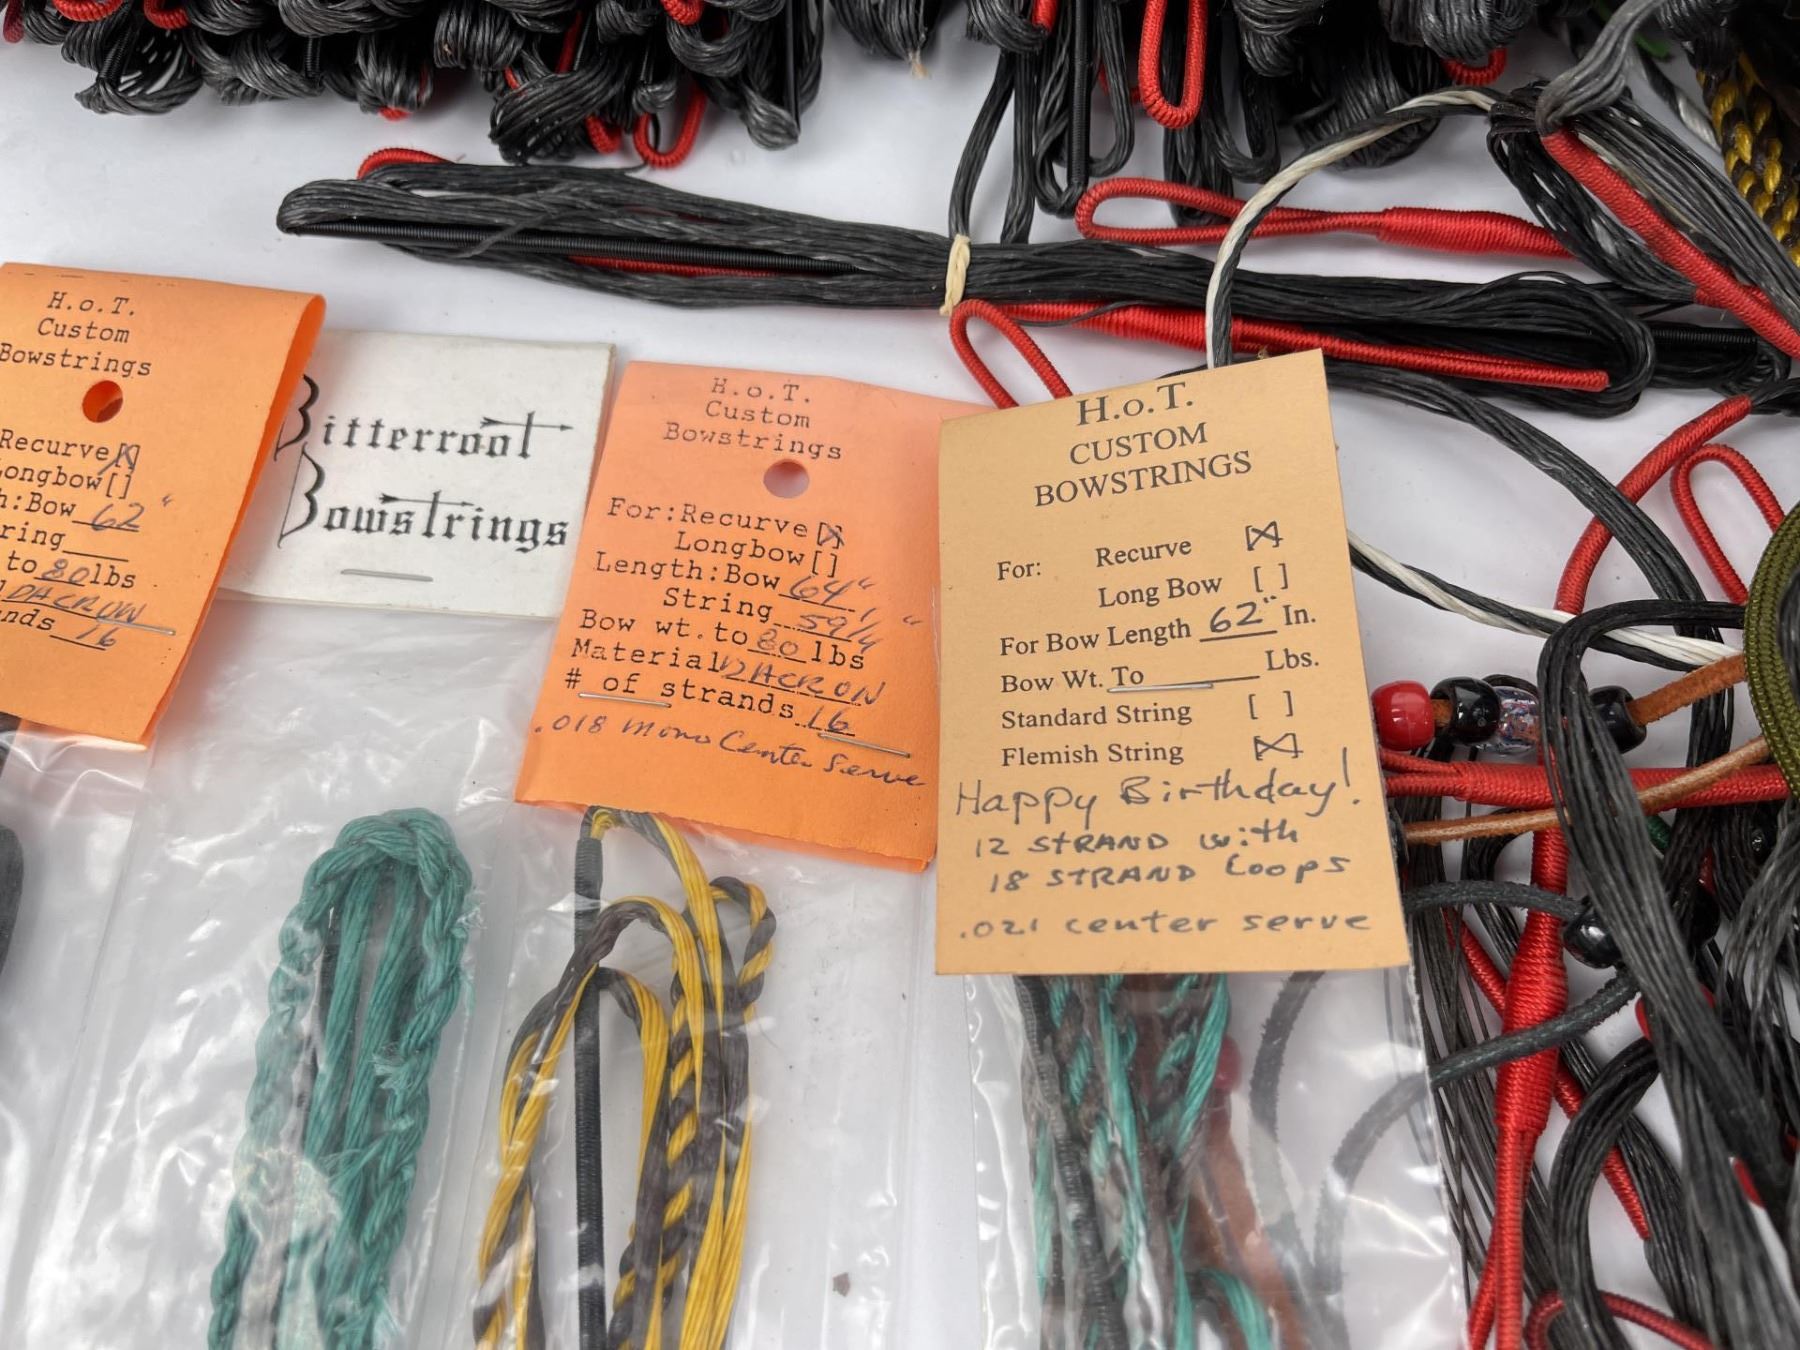 H.o.T.
Custom
Bowstrings
Recurve[X]
Longbow[]
h:Bow 62"
ring
to 80 lbs
DACRON
nds 16
Bitterroot
Bowstrings
H.o.T.
Custom
Bowstrings
For:Recurve[X]
Longbow[]
Length:Bow 64"
String 59 1/4"
Bow wt. to 80 lbs
Material DACRON
# of strands 16
.018 Mono Center Serve
H.o.T.
CUSTOM
BOWSTRINGS
For: Recurve [X]
Long Bow [ ]
For Bow Length 62" In.
Bow Wt. To Lbs.
Standard String [ ]
Flemish String [X]
Happy Birthday!
12 STRAND with
18 STRAND Loops
.021 center serve